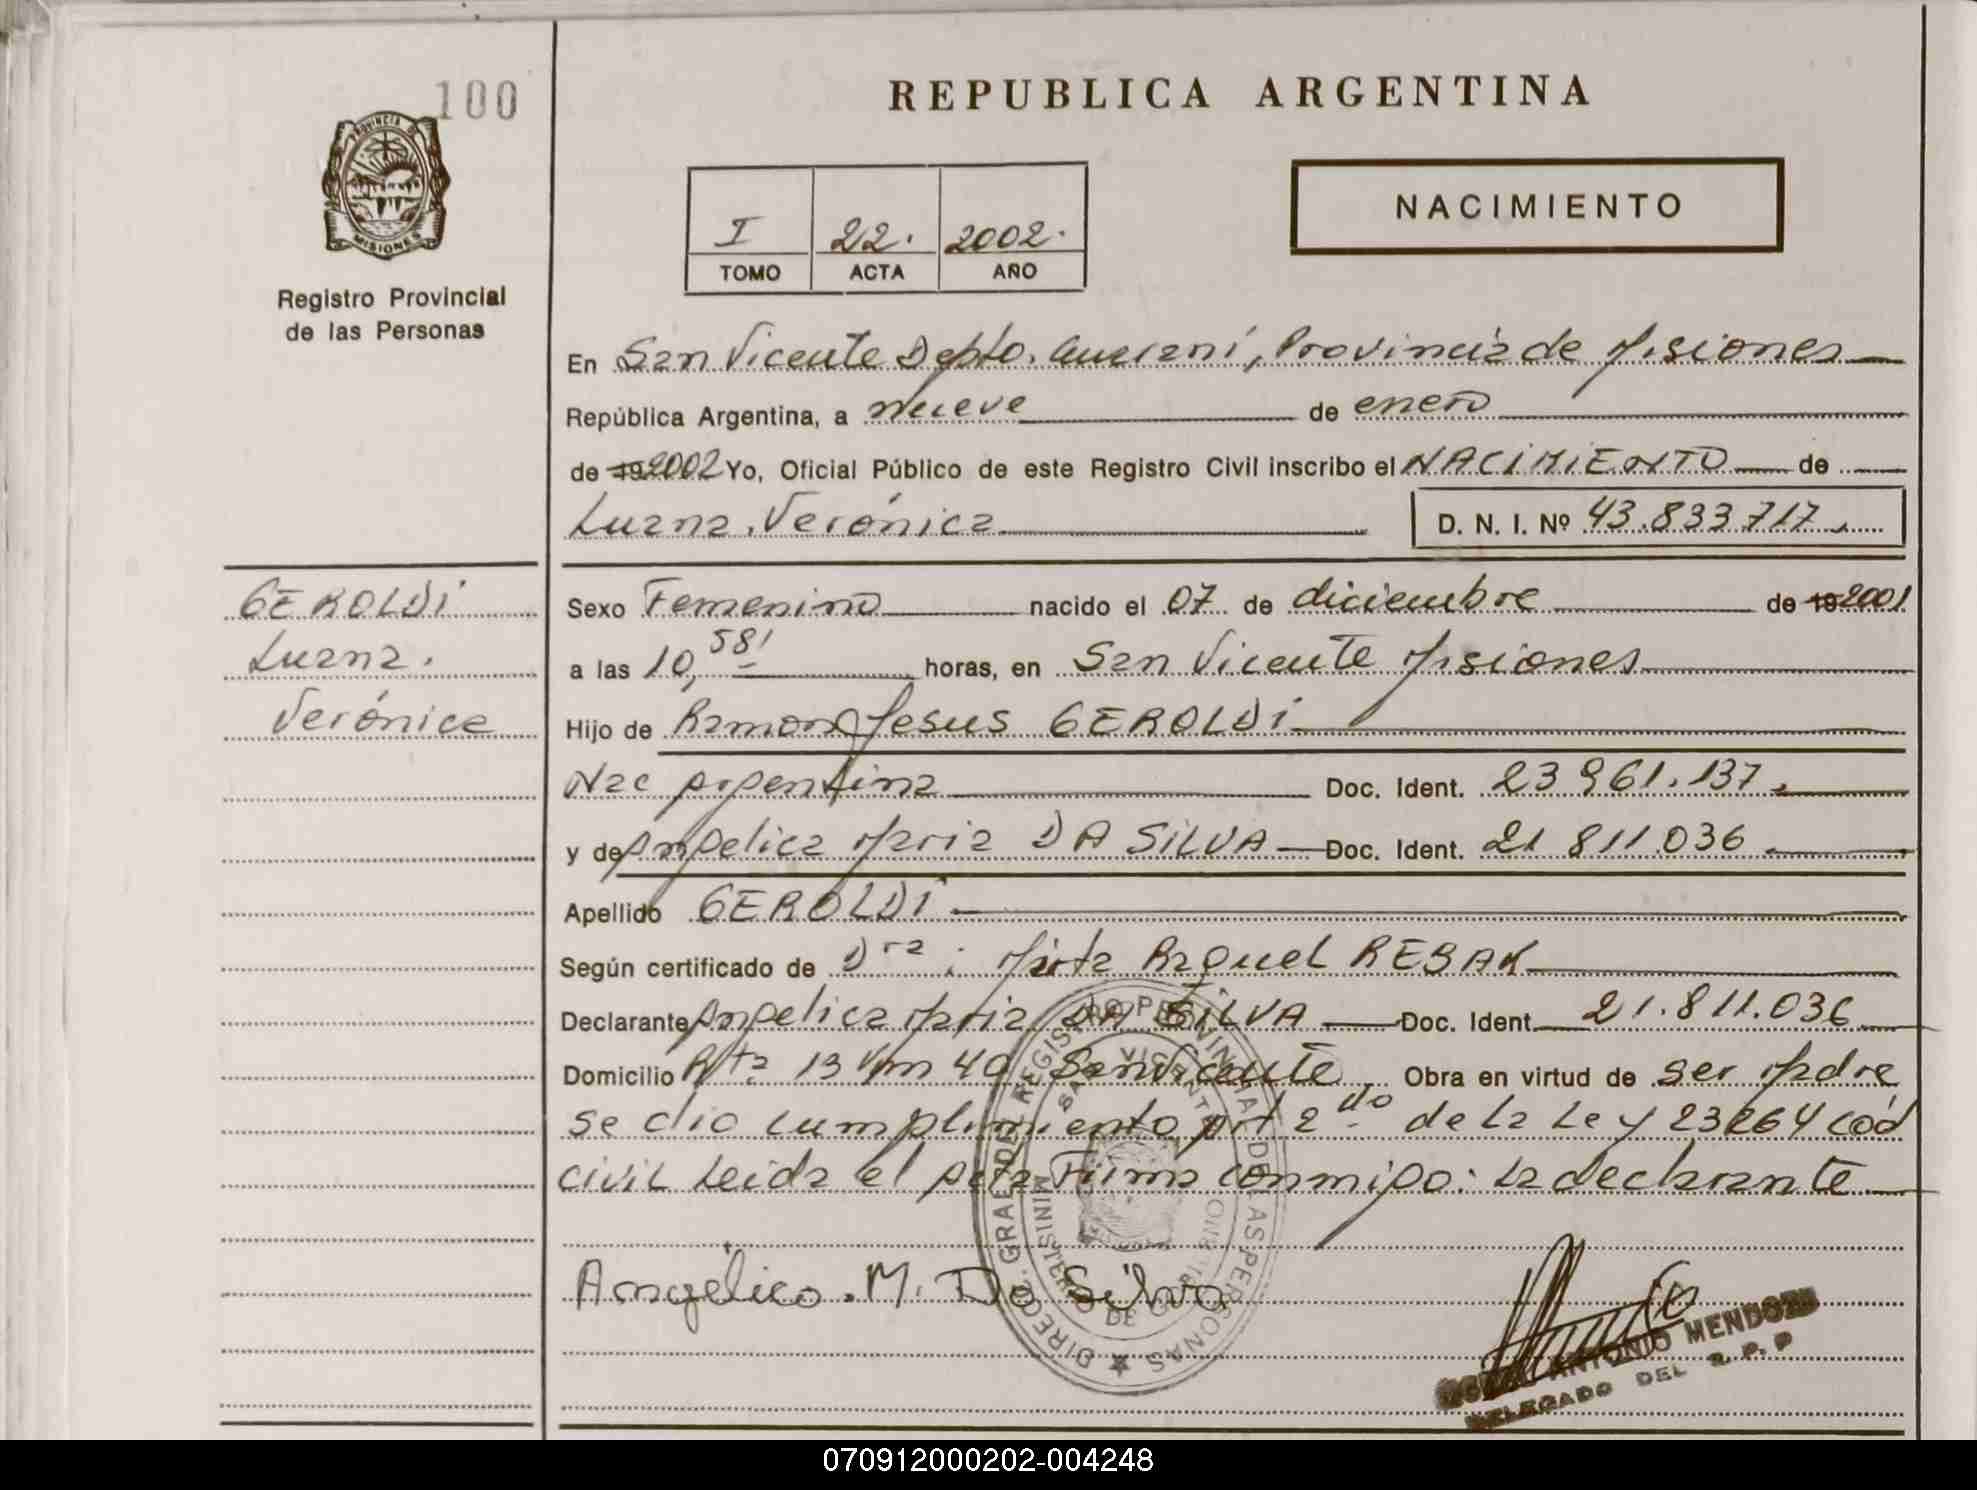 100
PROVINCIA DE
MISIONES
Registro Provincial
de las Personas
REPUBLICA ARGENTINA
I 22. 2002.
TOMO ACTA AÑO
NACIMIENTO
En San Vicente Depto. Guaraní, Provincia de Misiones
República Argentina, a nueve de enero
de 19 2002 Yo, Oficial Público de este Registro Civil inscribo el NACIMIENTO de
Luana Verónica D. N. I. Nº 43.833.717.
GEROLDI
Luana.
Verónica
Sexo Femenino nacido el 07 de diciembre de 19 2001
a las 10,58' horas, en San Vicente Misiones
Hijo de Ramon Jesus GEROLDI
Nac Argentina Doc. Ident. 23 961.137.
y de Angelica Maria DA SILVA Doc. Ident. 21 811.036.
Apellido GEROLDI
Según certificado de Dra: Mirta Raquel REBAK
Declarante Angelica Maria DA SILVA Doc. Ident. 21.811.036
Domicilio Rta 13 Km 40 San Vicente, Obra en virtud de ser Madre
se dio cumplimiento Art 2do de la Ley 23264 Cod
civil Leida el Acta Firma conmigo: La declarante
Angélica. M. Da Silva
DIREC. GRAL. DEL REGISTRO PROVINCIAL DE LAS PERSONAS
SAN VICENTE
MINISTERIO DE GOBIERNO
ANTONIO MENDOZA
DELEGADO DEL R. P. P
070912000202-004248